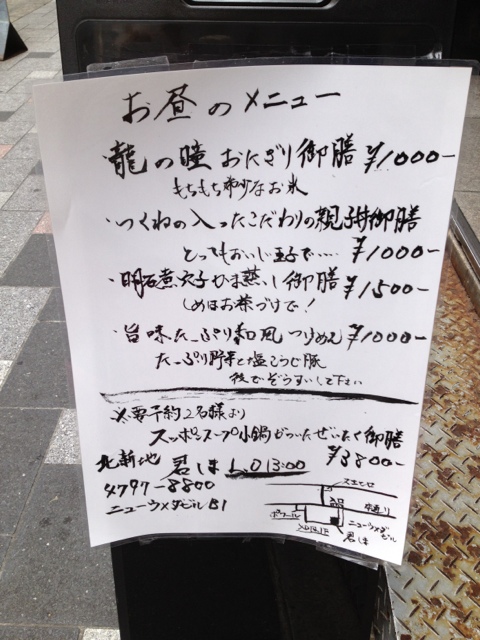 お昼のメニュー
・龍の瞳 おにぎり御膳 ¥1000-
もちもち希少なお米
・つくねの入ったこだわりの親子丼御膳
とってもおいしい玉子で…… ¥1000-
・明石煮穴子ひつま蒸し御膳 ¥1500-
しめはお茶づけで!
・旨味たっぷり和風つけめん ¥1000-
たっぷり野菜と塩こうじ豚
後でぞうすいして下さい
※要予約2名様より
スッポンスープ小鍋がついたぜいたく御膳
¥3800-
北新地 君しま L.O 13:00
4797-8800
ニューウメダビル B1
ニューウメダ
ビル